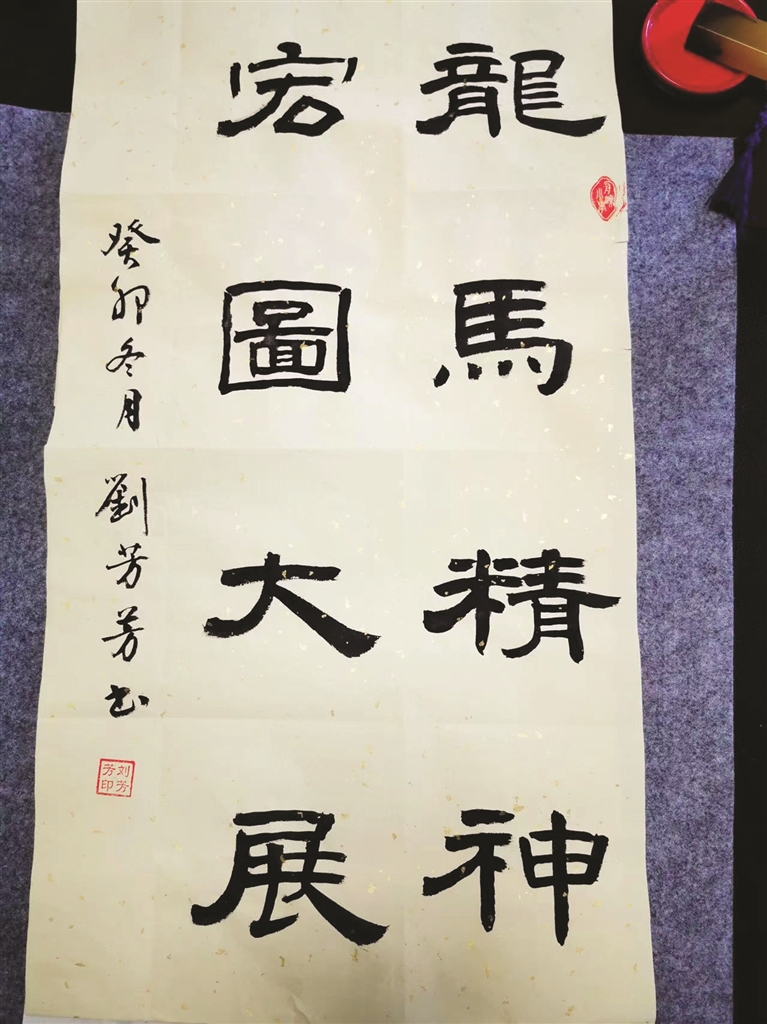 龍馬精神
宏圖大展
癸卯冬月 劉芳芳书
刘芳芳印